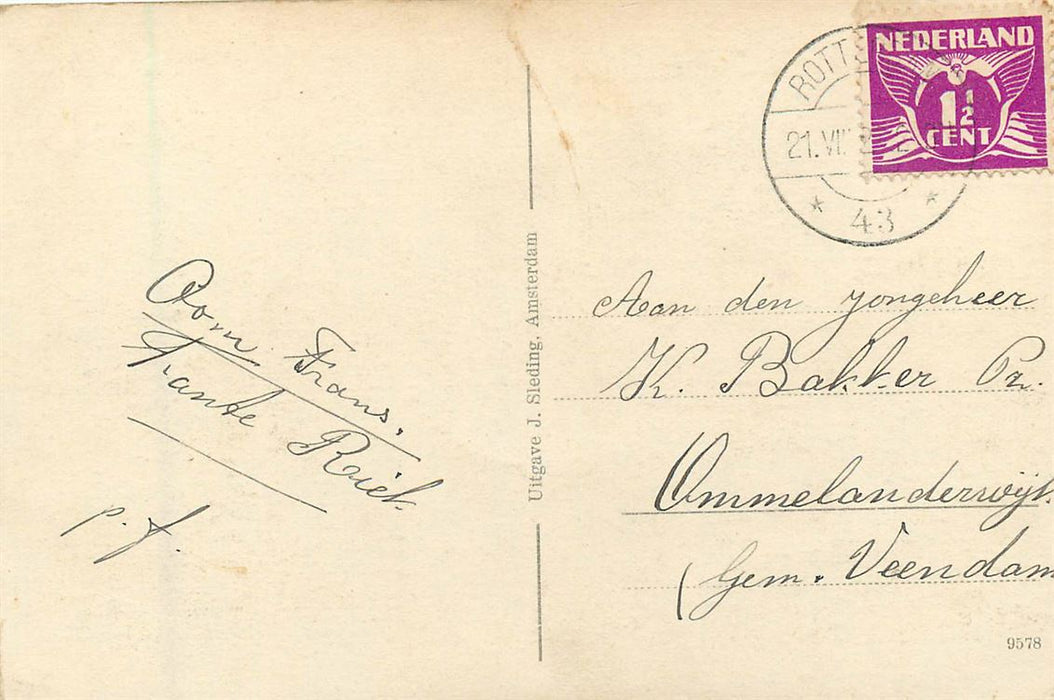 Oom Frans,
Tante Riek
p. f.
Uitgave J. Sleding, Amsterdam
NEDERLAND
1½
CENT
21.VII
43
Aan den jongeheer
K. Bakker Pz.
Ommelanderwijk
(Gem. Veendam
9578